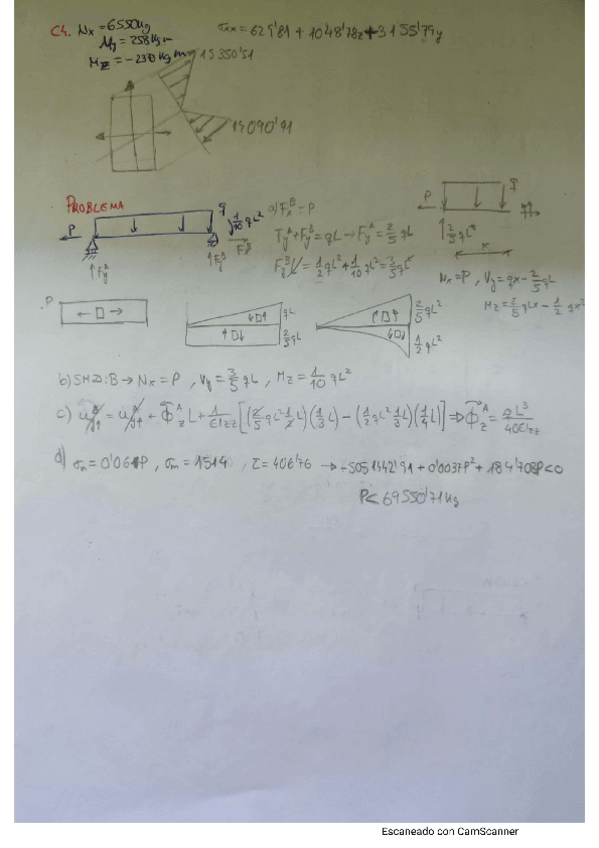 C4. Nx = 6550Kg
σxx = 629'81 + 1048'78z + 3155'79y
My = 258Kg m
Mz = -230Kg m
15350'51
15090'91
PROBLEMA
P
q
1/10 qL²
a) FxB = P
FyA + FyB = qL → FyA = 2/5 qL
FyB L = 1/2 qL² + 1/10 qL² = 3/5 qL²
FyA
FyB
FxB
P
q
2/5 qL
x
Nx = P, Vy = qx - 2/5 qL
Mz = 2/5 qLx - 1/2 qx²
P
qL
2/5 qL
2/5 qL²
1/2 qL²
b) SMD: B → Nx = P, Vy = 3/5 qL, Mz = 1/10 qL²
c) uy↑B = uy↑A + ΦzA L + 1/EIzz [(2/5 qL² 1/2 L)(1/3 L) - (1/2 qL² 1/3 L)(1/4 L)] ⇒ ΦzA = qL³/40EIzz
d) σn = 0'061P, σm = 1514, τ = 406'76 → -5051542'91 + 0'0037P² + 184'708P < 0
P < 69550'71Kg
Escaneado con CamScanner